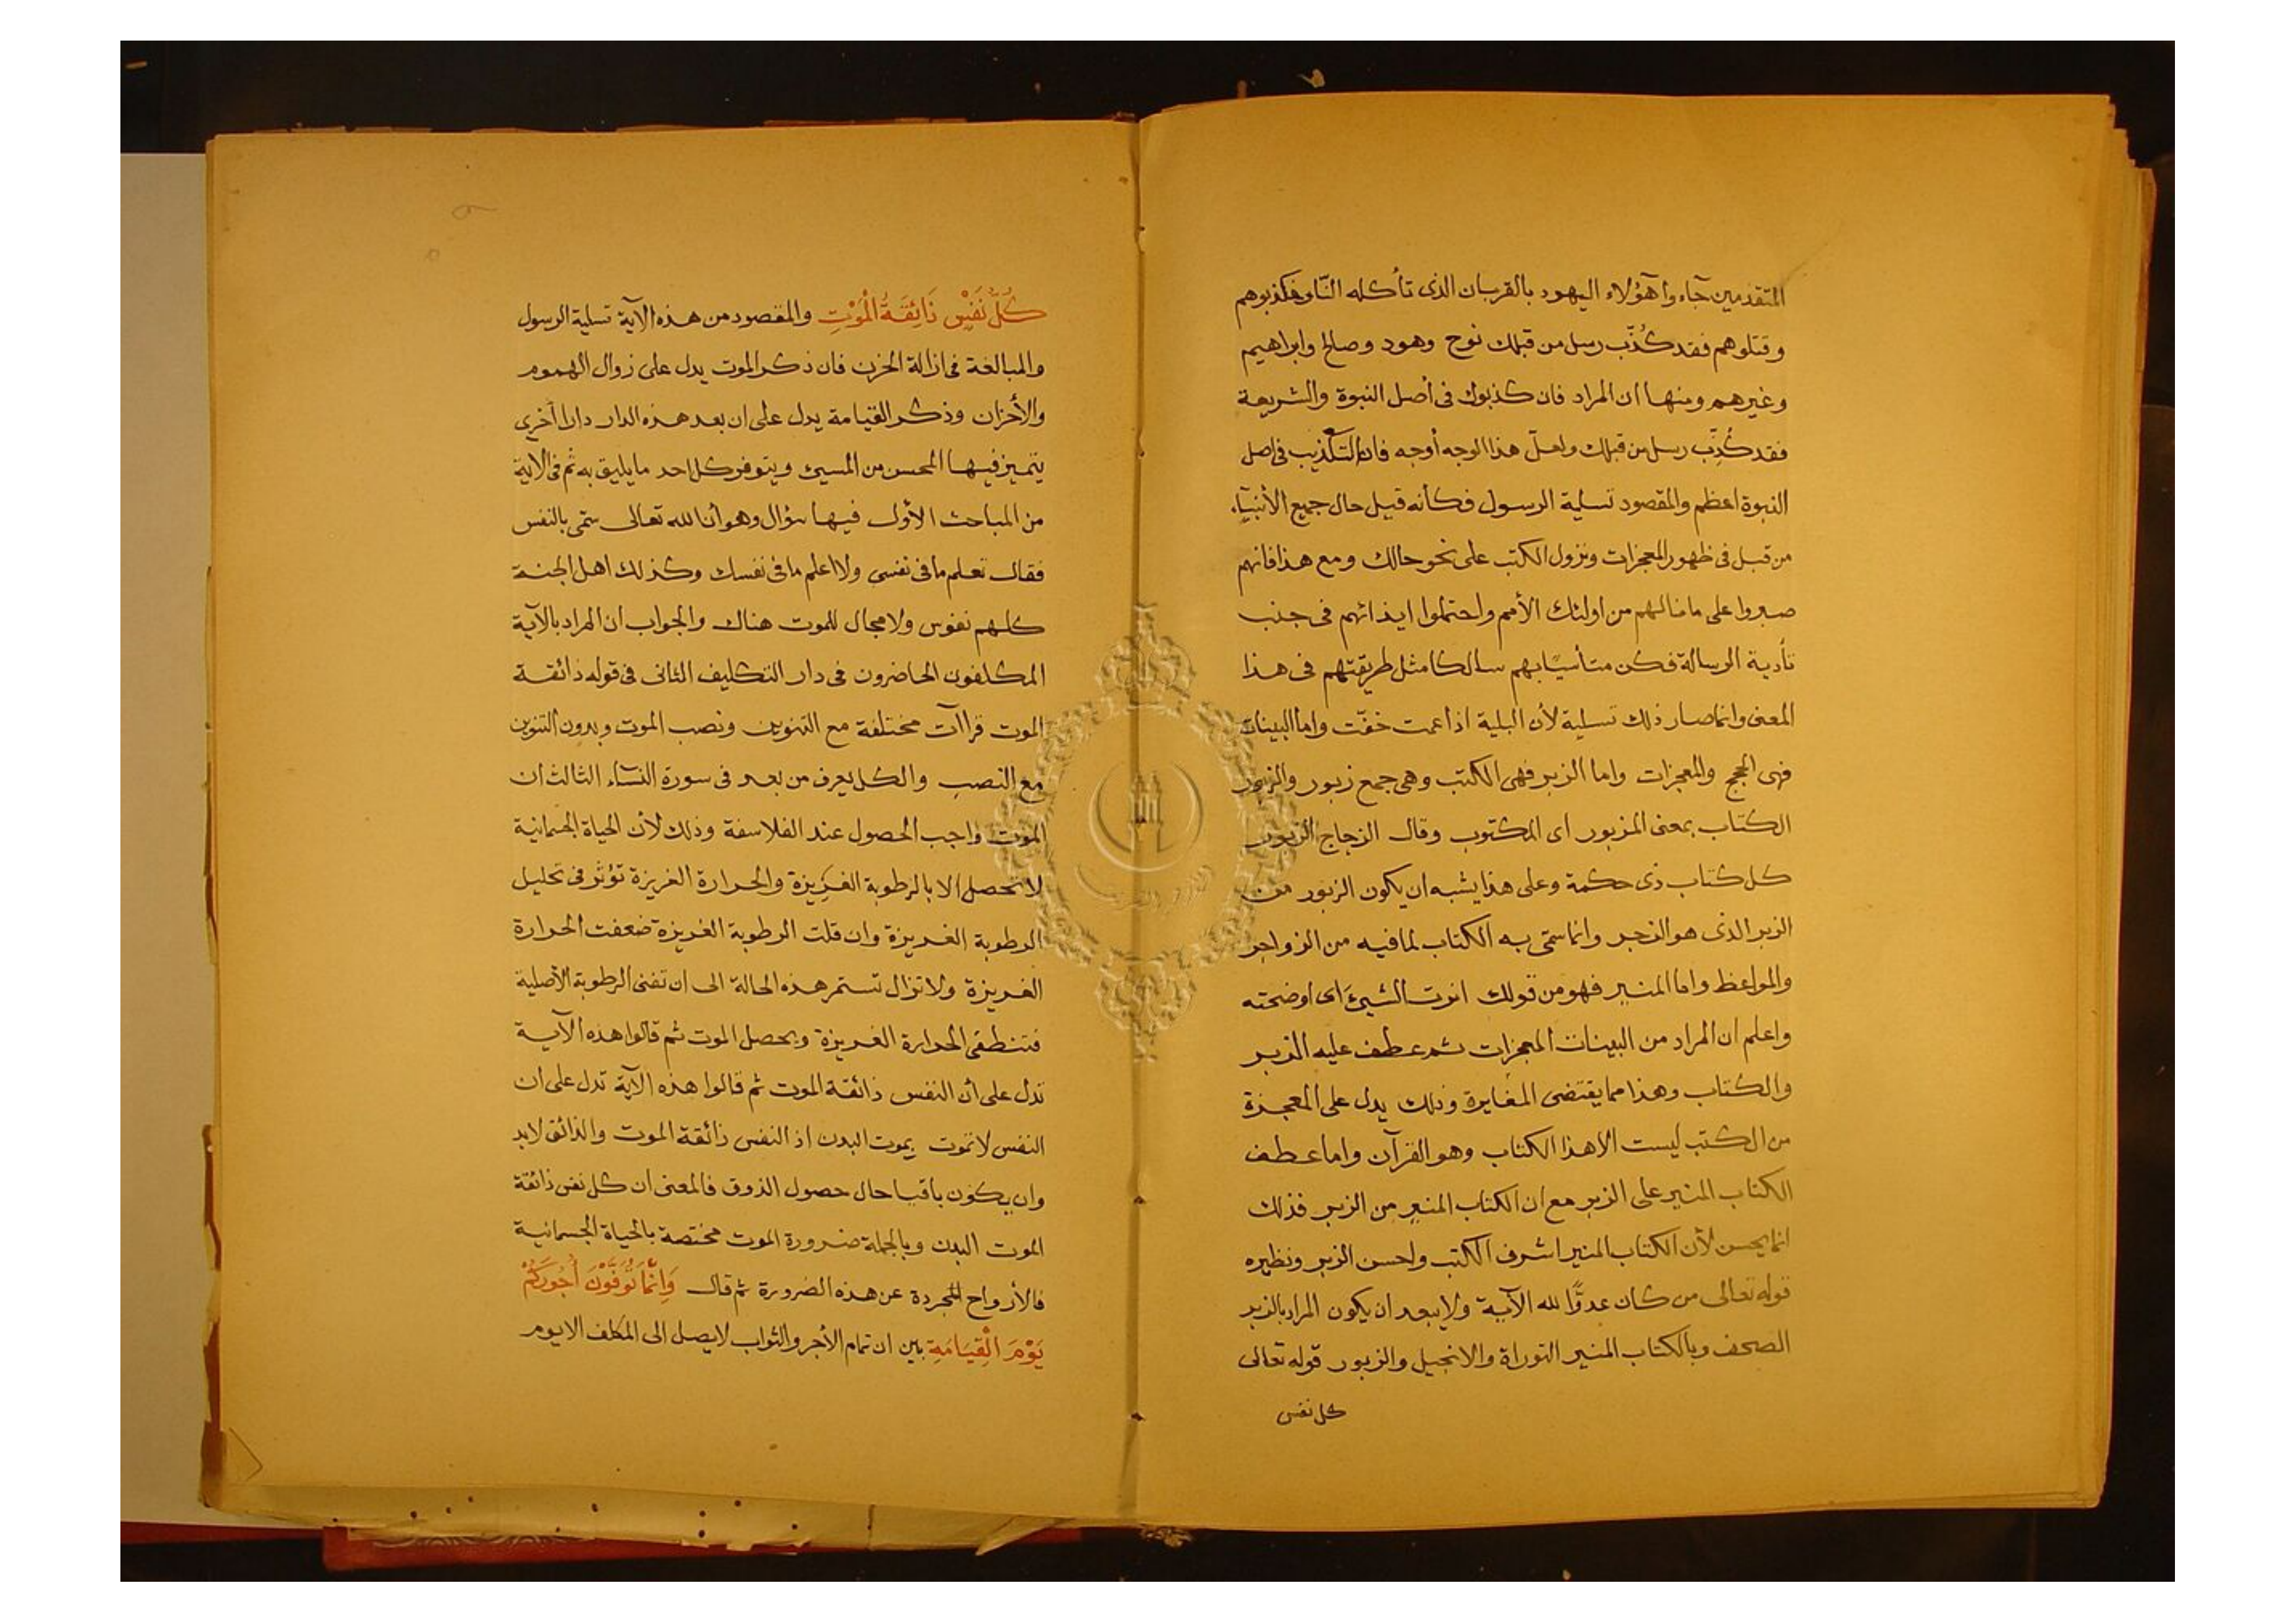 المتقدمين جاءوا هؤلاء اليهود بالقربان الذى تأكله النار فكذبوهم
وقتلوهم فقد كُذّب رسل من قبلك نوح وهود وصالح وابراهيم
وغيرهم ومنها ان المراد فان كذبوك فى أصل النبوة والشريعة
فقد كُذِّب رسل من قبلك ولعلّ هذا الوجه أوجه فان التكذيب فى اصل
النبوة اعظم والمقصود تسلية الرسول فكأنه قيل حال جميع الأنبيآء
من قبل فى ظهور المعجزات ونزول الكتب على نحو حالك ومع هذا فانهم
صبروا على ما نالهم من اولئك الأمم واحتملوا ايذائهم فى جنب
تأدية الرسالة فكن متأسيًا بهم سالكا مثل طريقتهم فى هذا
المعنى وانما صار ذلك تسلية لأن البلية اذا عمت خفّت واما البينات
فهى الحجج والمعجزات واما الزبر فهى الكتب وهى جمع زبور والزبور
الكتاب بمعنى المزبور اى المكتوب وقال الزجاج الزبور
كل كتاب ذى حكمة وعلى هذا يشبه ان يكون الزبور من
الزبر الذى هو الزجر وانما سمّى به الكتاب لما فيه من الزواجر
والمواعظ واما المنير فهو من قولك انرت الشيئ اى اوضحته
واعلم ان المراد من البينات المعجزات ثم عطف عليه الزبر
والكتاب وهذا مما يقتضى المغايرة وذلك يدل على المعجزة
من الكتب ليست الا هذا الكتاب وهو القرآن واما عطف
الكتاب المنير على الزبر مع ان الكتاب المنير من الزبر فذلك
انما يحسن لأن الكتاب المنير اشرف الكتب واحسن الزبر ونظيره
قوله تعالى من كان عدوًّا لله الآية ولا يبعد ان يكون المراد بالزبر
الصحف وبالكتاب المنير التوراة والانجيل والزبور قوله تعالى
كل نفس
كُلُّ نَفْسٍ ذَائِقَةُ الْمَوْتِ والمقصود من هذه الآية تسلية الرسول
والمبالغة فى ازالة الحزن فان ذكر الموت يدل على زوال الهموم
والأحزان وذكر القيامة يدل على ان بعد هذه الدار دارا أخرى
يتميز فيها المحسن من المسيئ ويتوفر كل احد ما يليق به ثم فى الآية
من المباحث الأول فيها سؤال وهو أن الله تعالى سمّى بالنفس
فقال تعلم ما فى نفسى ولا اعلم ما فى نفسك وكذلك اهل الجنة
كلهم نفوس ولا مجال للموت هناك والجواب ان المراد بالآية
المكلفون الحاضرون فى دار التكليف الثانى فى قوله ذائقة
الموت قراآت مختلفة مع التنوين ونصب الموت وبدون التنوين
مع النصب والكل يعرف من بعد فى سورة النسآء الثالث ان
الموت واجب الحصول عند الفلاسفة وذلك لأن الحياة الجسمانية
لا تحصل الا بالرطوبة الغريزة والحرارة الغريزة تؤثر فى تحليل
الرطوبة الغريزة وان قلت الرطوبة الغريزة ضعفت الحرارة
الغريزة ولا تزال تستمر هذه الحالة الى ان تفنى الرطوبة الأصلية
فتنطفئ الحرارة الغريزة ويحصل الموت ثم قالوا هذه الآية
تدل على أن النفس ذائقة الموت ثم قالوا هذه الآية تدل على ان
النفس لا تموت بموت البدن اذ النفس ذائقة الموت والذائق لابد
وان يكون باقيا حال حصول الذوق فالمعنى ان كل نفس ذائقة
الموت البدن وبالجملة ضرورة الموت مختصة بالحياة الجسمانية
فالأرواح المجردة عن هذه الضرورة ثم قال وَاِنَّمَا تُوَفَّوْنَ أُجُورَكُمْ
يَوْمَ الْقِيَامَةِ بين ان تمام الأجر والثواب لا يصل الى المكلف الا يوم